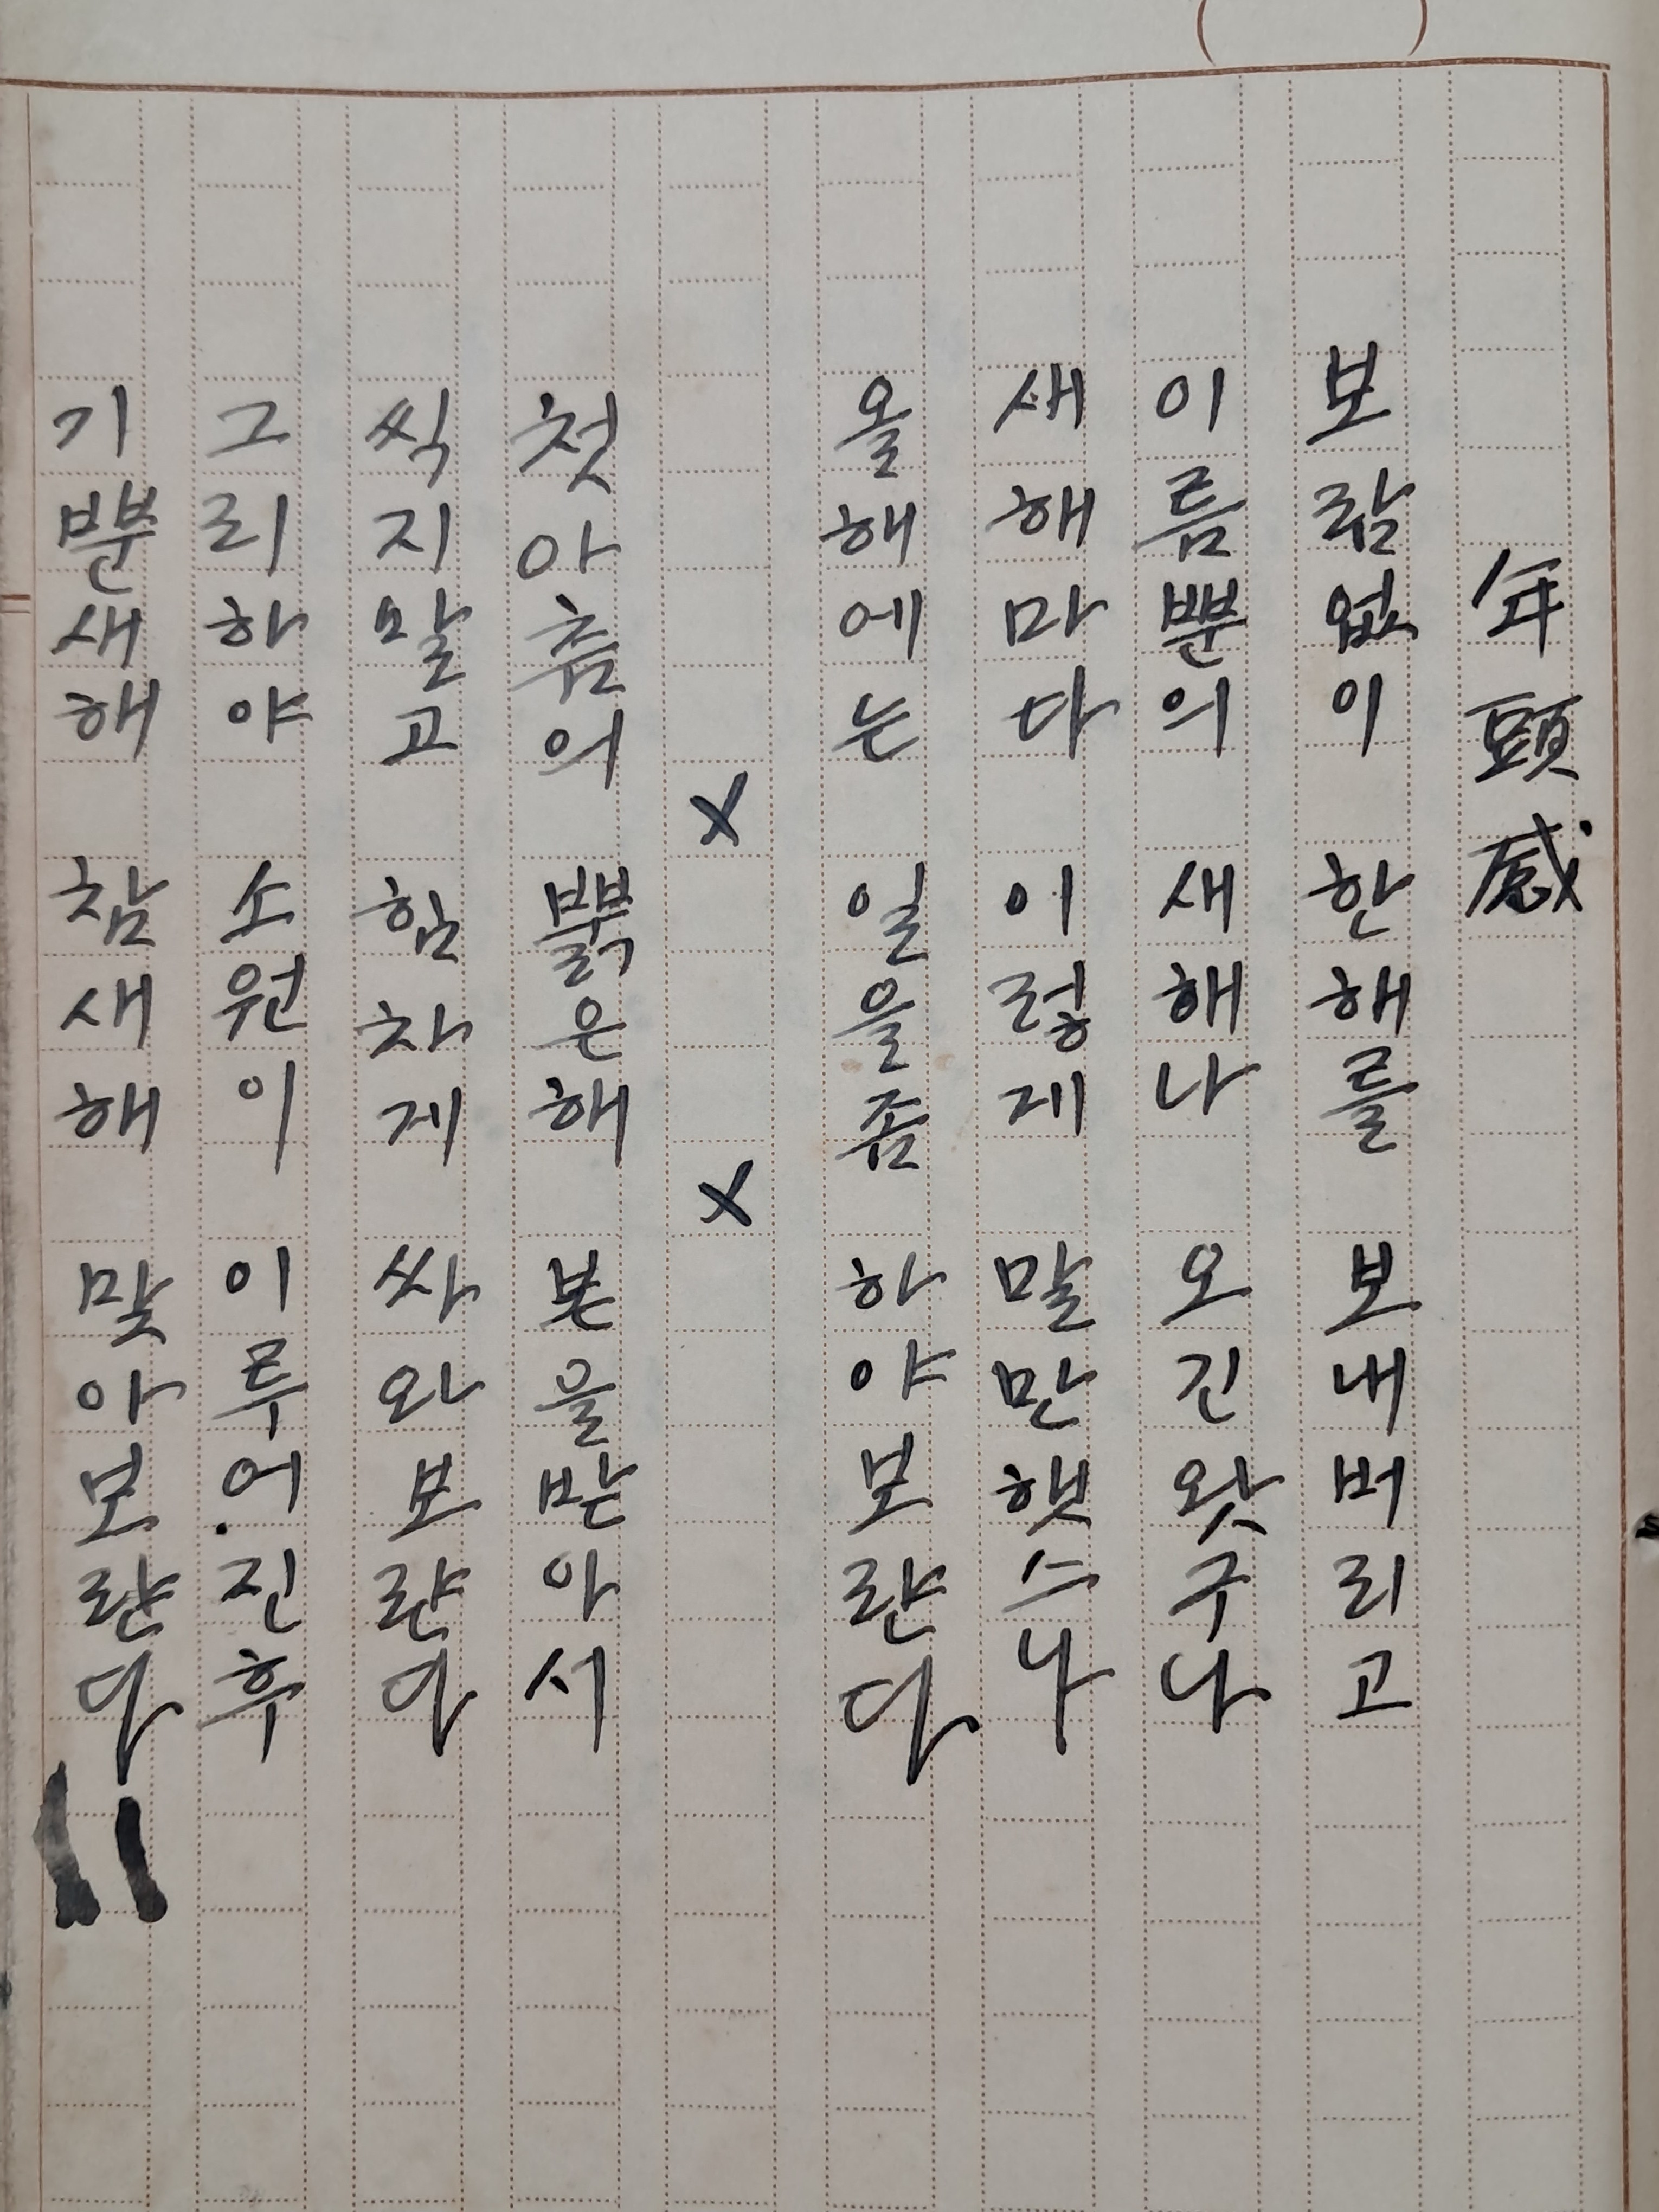 年頭感
보람없이 한해를 보내버리고
이름뿐의 새해나 오긴왓구나
새해마다 이렇게 말만햇스나
올해에는 일을좀 하야보랸다
× ×
첫아츰의 뿕은해 본을받아서
씩지말고 힘차게 싸와보랸다
그리하야 소원이 이루어진후
기뿐새해 참새해 맟아보랸다